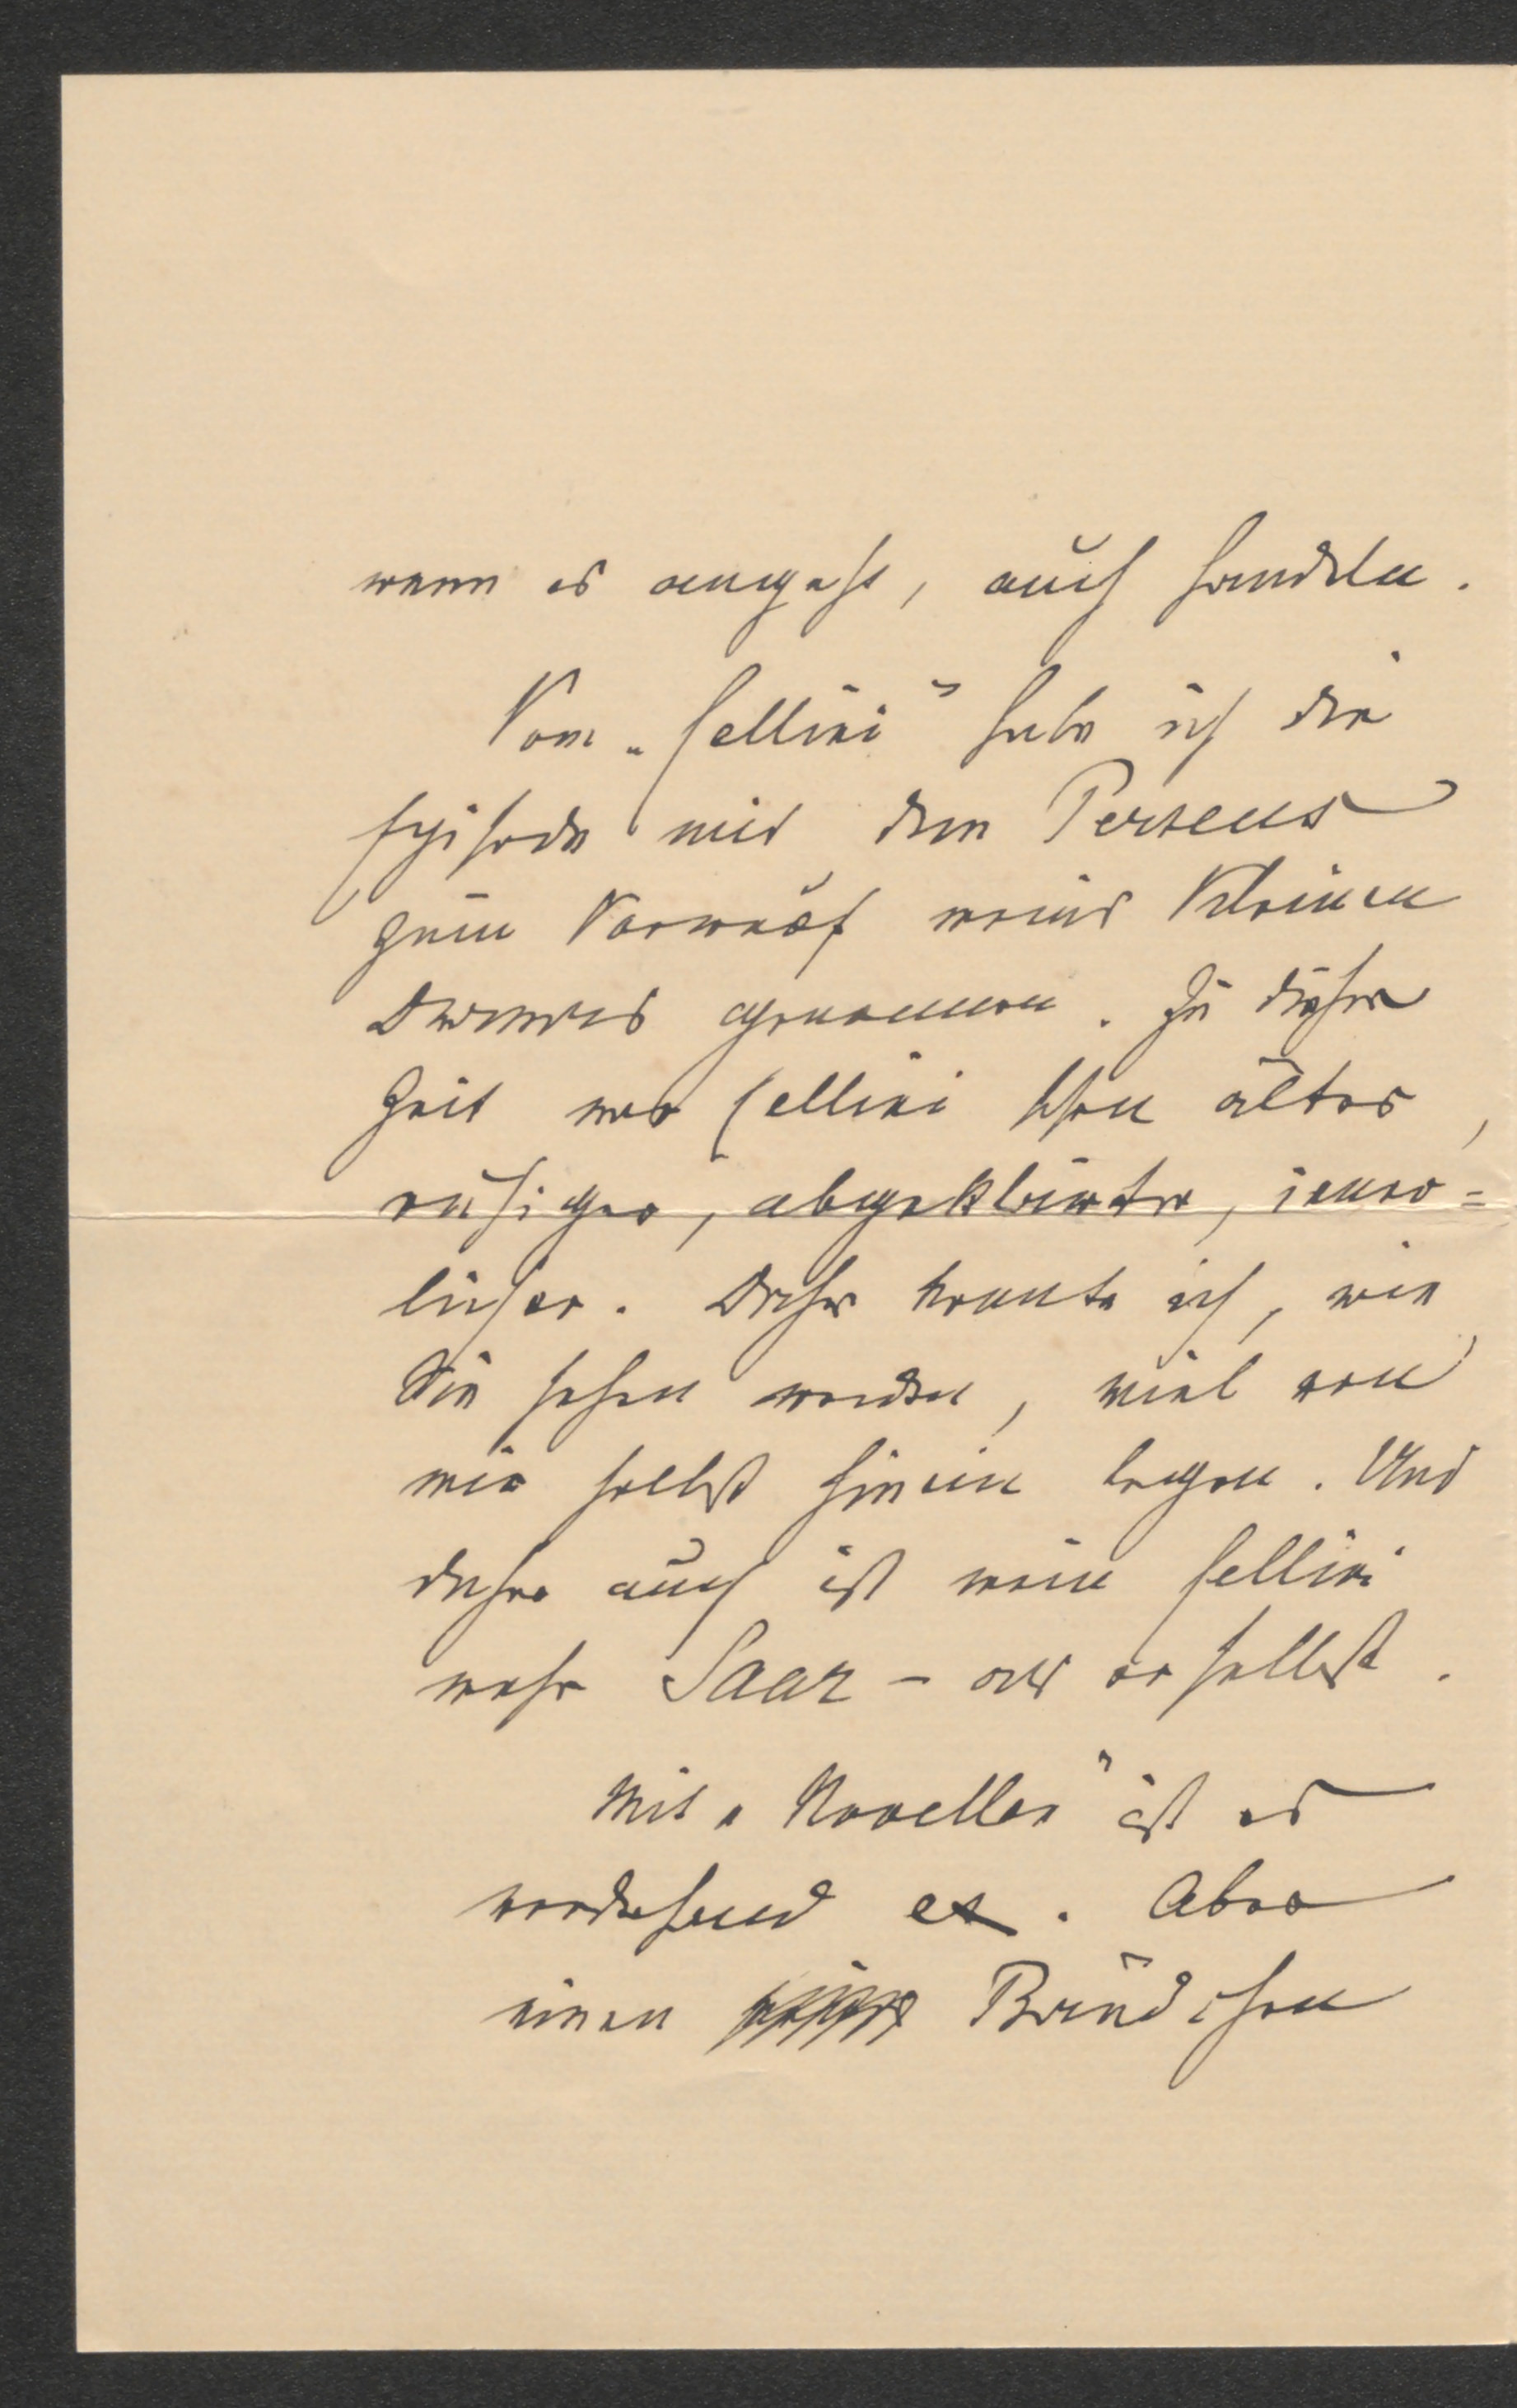 wenn es angeht, auch handeln.
Vom „Cellini" habe ich die
Episode mit dem Perseus
zum Vorwurf meines kleinen
Dramas genommen. Zu dieser
Zeit war Cellini schon älter,
ruhiger, abgeklärter, inner=
licher. Daher konnte ich, wie
Sie sehen werden, viel von
mir selbst hinein legen. Und
daher auch ist mein Cellini
mehr Saar – als er selbst.
Mit „Novellen" ist es
vorderhand ex. Aber
einen Bändchen